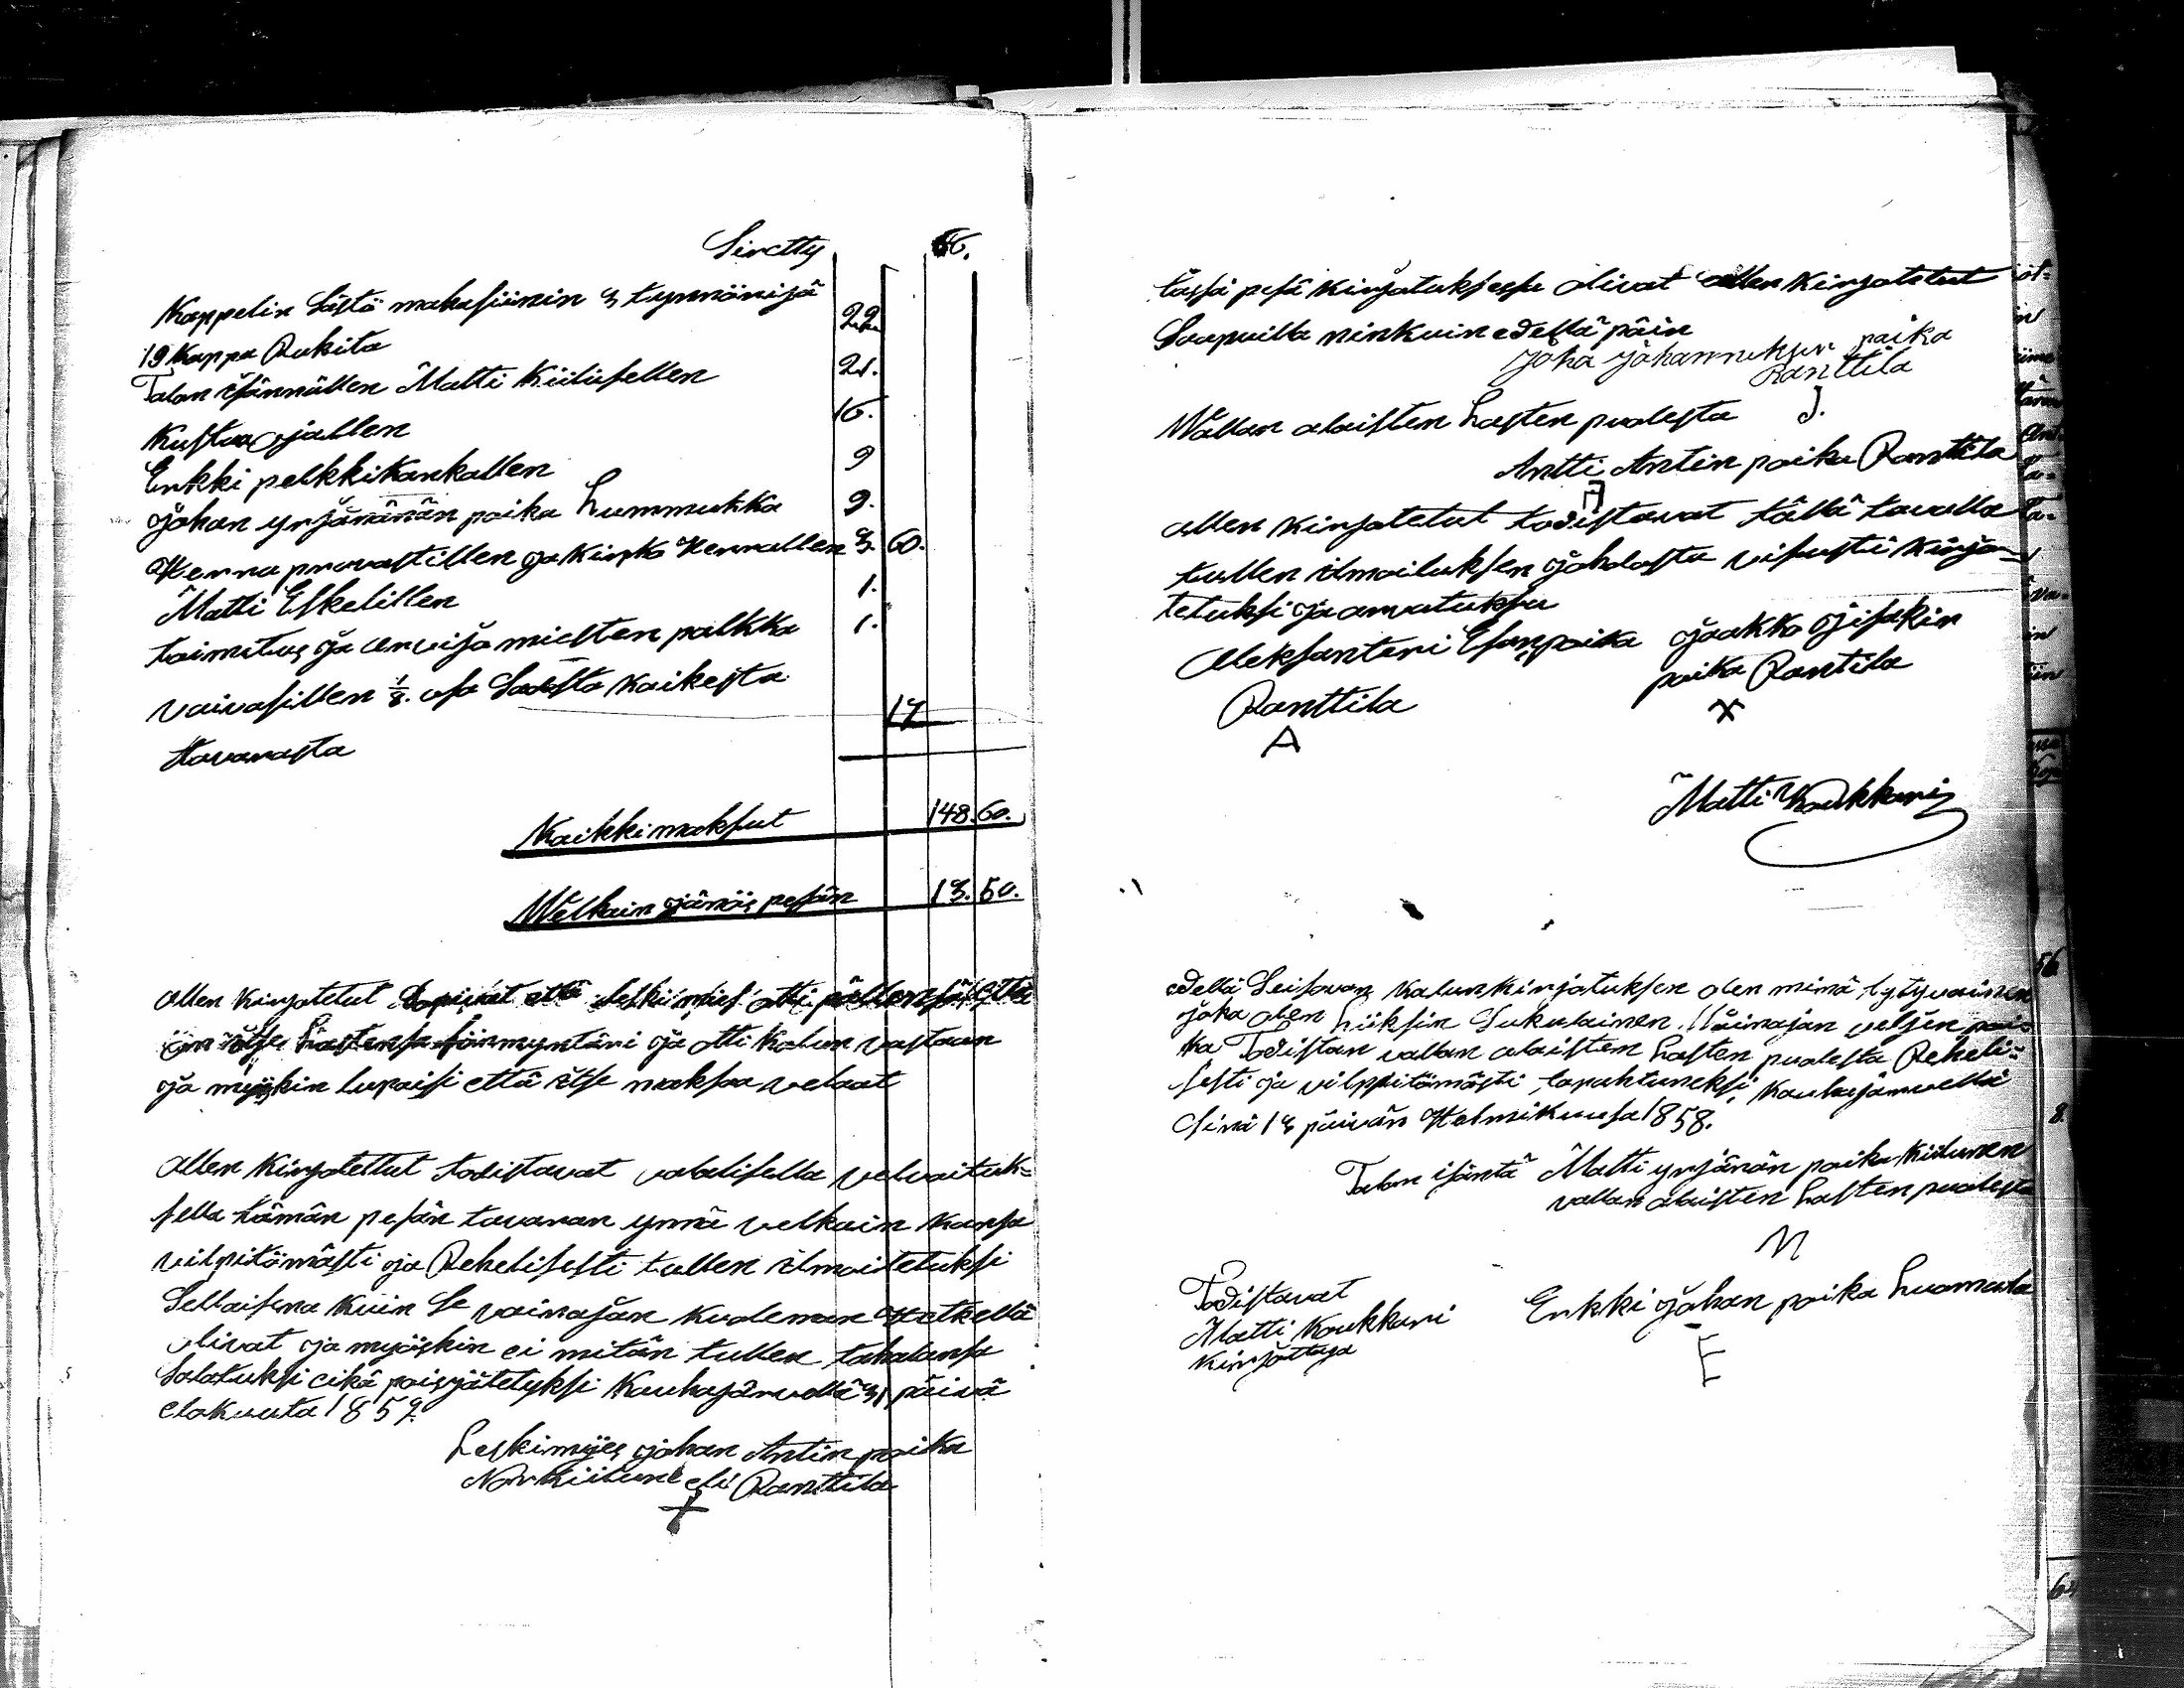 Siretty 66.
Kappelin Lästö makasiinin 3 tynnöriä
19 Kappa Rukita 22
Talon isännällen Matti Kiilusellen 21.
Kustaa ojallen 16.
Erkki pelkkikankallen 9
Johan yrjänänän poika Lummukka 9.
Herra provastillen ja Kirko Herrallen 3. 60.
Matti Eskelillen 1.
toimitus ja arvioja miesten palkka 1.
vaivasillen 1/8. osa Sadasta kaikesta
tavarasta 17
Kaikki maksut 148. 60.
Welkain jänös pesän 13. 50.
allen Kirjotetut Sopivat että leski mies otti
itse lastensa förmyntäri ja otti kalun vastaan
ja myöskin lupaisi että itse maksaa velaat
allen Kirjotettut todistavat valalisella velvoituk-
sella tämän pesän tavaran ynnä velkain kansa
vilpitömästi ja Rehelisesti tullen ilmoitetuksi
Sellaisena kuin Se vainajan kuoleman Hetkellä
olivat ja myöskin ei mitän tullen tahalansa
Salatuksi eikä poisjätetyksi Kauhajärvellä 31 päivä
elokuuta 1857.
Leskimyes johan Antin poika
Norkiilune eli Ranttila
tässä pesä kirjotuksessa olivat allen kirjotetut
Saapuilla ninkuin edellä päin
Joha Johanneksen poika
Ranttila
J.
Wallan alaisten Lasten puolesta
Antti Antin poika Ranttila
A
allen kirjotetut todistavat tällä tavalla
tullen ilmoituksen johdosta visusti kirjo-
tetuksi ja arvatuksi
Aleksanteri Esan poika jaakko jisakin
Ranttila poika Rantila
A X
Matti Koukkari
edellä Seisovan kalunkirjotuksen olen minä tytyväinen
joka olen Liiksin Sukulainen. Wainajan veljen poi-
ka Todistan vallan alaisten Lasten puolesta Reheli-
sesti ja vilppitömästi tapahtuneksi, Kauhajärvellä
Sinä 13 päivän Helmikuusa 1858.
Talon isäntä Matti yrjänän poika Kiilunen
vallan alaisten Lasten puolesta
M
Todistavat
Matti Koukkari Erkki johan poika Luomala
Kirjottaja E